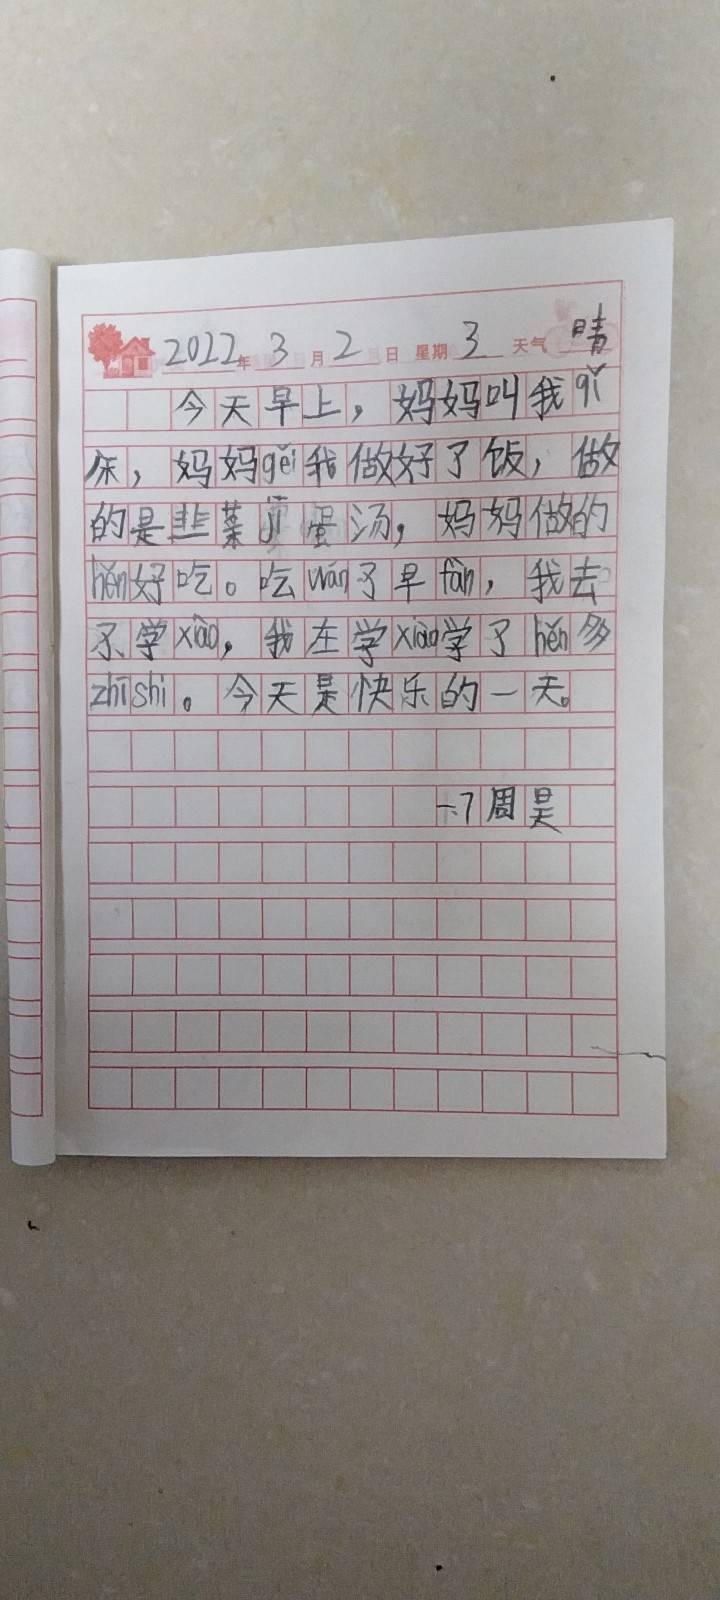 2022年3月2日 星期3 天气 晴
今天早上，妈妈叫我qǐ
床，妈妈gěi我做好了饭，做
的是韭菜jī蛋汤，妈妈做的
hěn好吃。吃wán了早fàn，我去
了学xiào，我在学xiào学了hěn多
zhīshi。今天是快乐的一天。
一.7周昊